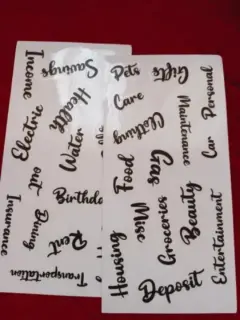 Income
Savings
Health
Electric
Water
out
Dining
Birthda
Insurance
Rent
Transportation
Pets
Gifts
Care
Personal
Maintenance
Clothing
Car
Food
Gas
Misc
Groceries
Beauty
Housing
Deposit
Entertainment